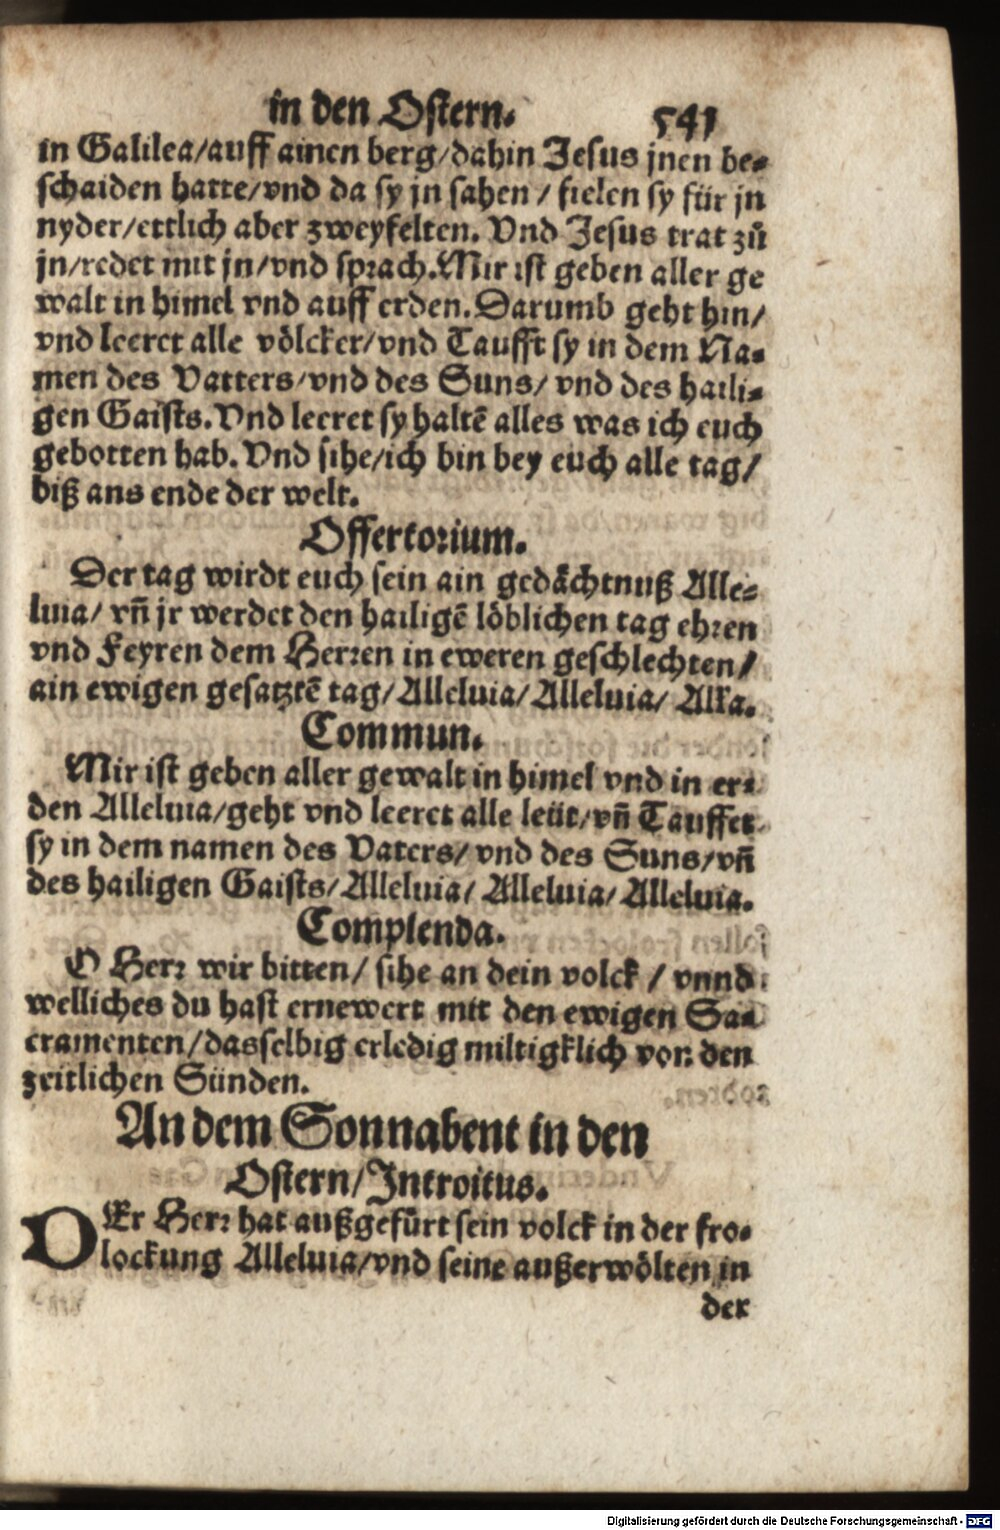 in den Ostern. 541
in Galilea/auff ainen berg/dahin Jesus jnen be-
schaiden hatte/vnd da sy jn sahen / fielen sy für jn
nyder/ettlich aber zweyfelten. Vnd Jesus trat zů
jn/redet mit jn/vnd sprach. Mir ist geben aller ge
walt in himel vnd auff erden. Darumb geht hin/
vnd leeret alle völcker/vnd Taufft sy in dem Na-
men des Vatters/vnd des Suns/ vnd des haili-
gen Gaists. Vnd leeret sy haltē alles was ich euch
gebotten hab. Vnd sihe/ich bin bey euch alle tag/
biß ans ende der welt.
Offertorium.
Der tag wirdt euch sein ain gedächtnuß Alle-
luia/ vñ jr werdet den hailigē löblichen tag ehren
vnd Feyren dem Herren in eweren geschlechten/
ain ewigen gesatztē tag/Alleluia/Alleluia/ Alla.
Commun.
Mir ist geben aller gewalt in himel vnd in er-
den Alleluia/geht vnd leeret alle leüt/vñ Tauffet
sy in dem namen des Vaters/ vnd des Suns/vñ
des hailigen Gaists/Alleluia/ Alleluia/Alleluia.
Complenda.
O Herr wir bitten/ sihe an dein volck / vnnd
welliches du hast ernewert mit den ewigen Sa-
cramenten/dasselbig erledig miltigklich von den
zeitlichen Sünden.
An dem Sonnabent in den
Ostern/Introitus.
DEr Herr hat außgefürt sein volck in der fro-
lockung Alleluia/vnd seine außerwölten in
der
Digitalisierung gefördert durch die Deutsche Forschungsgemeinschaft - DFG